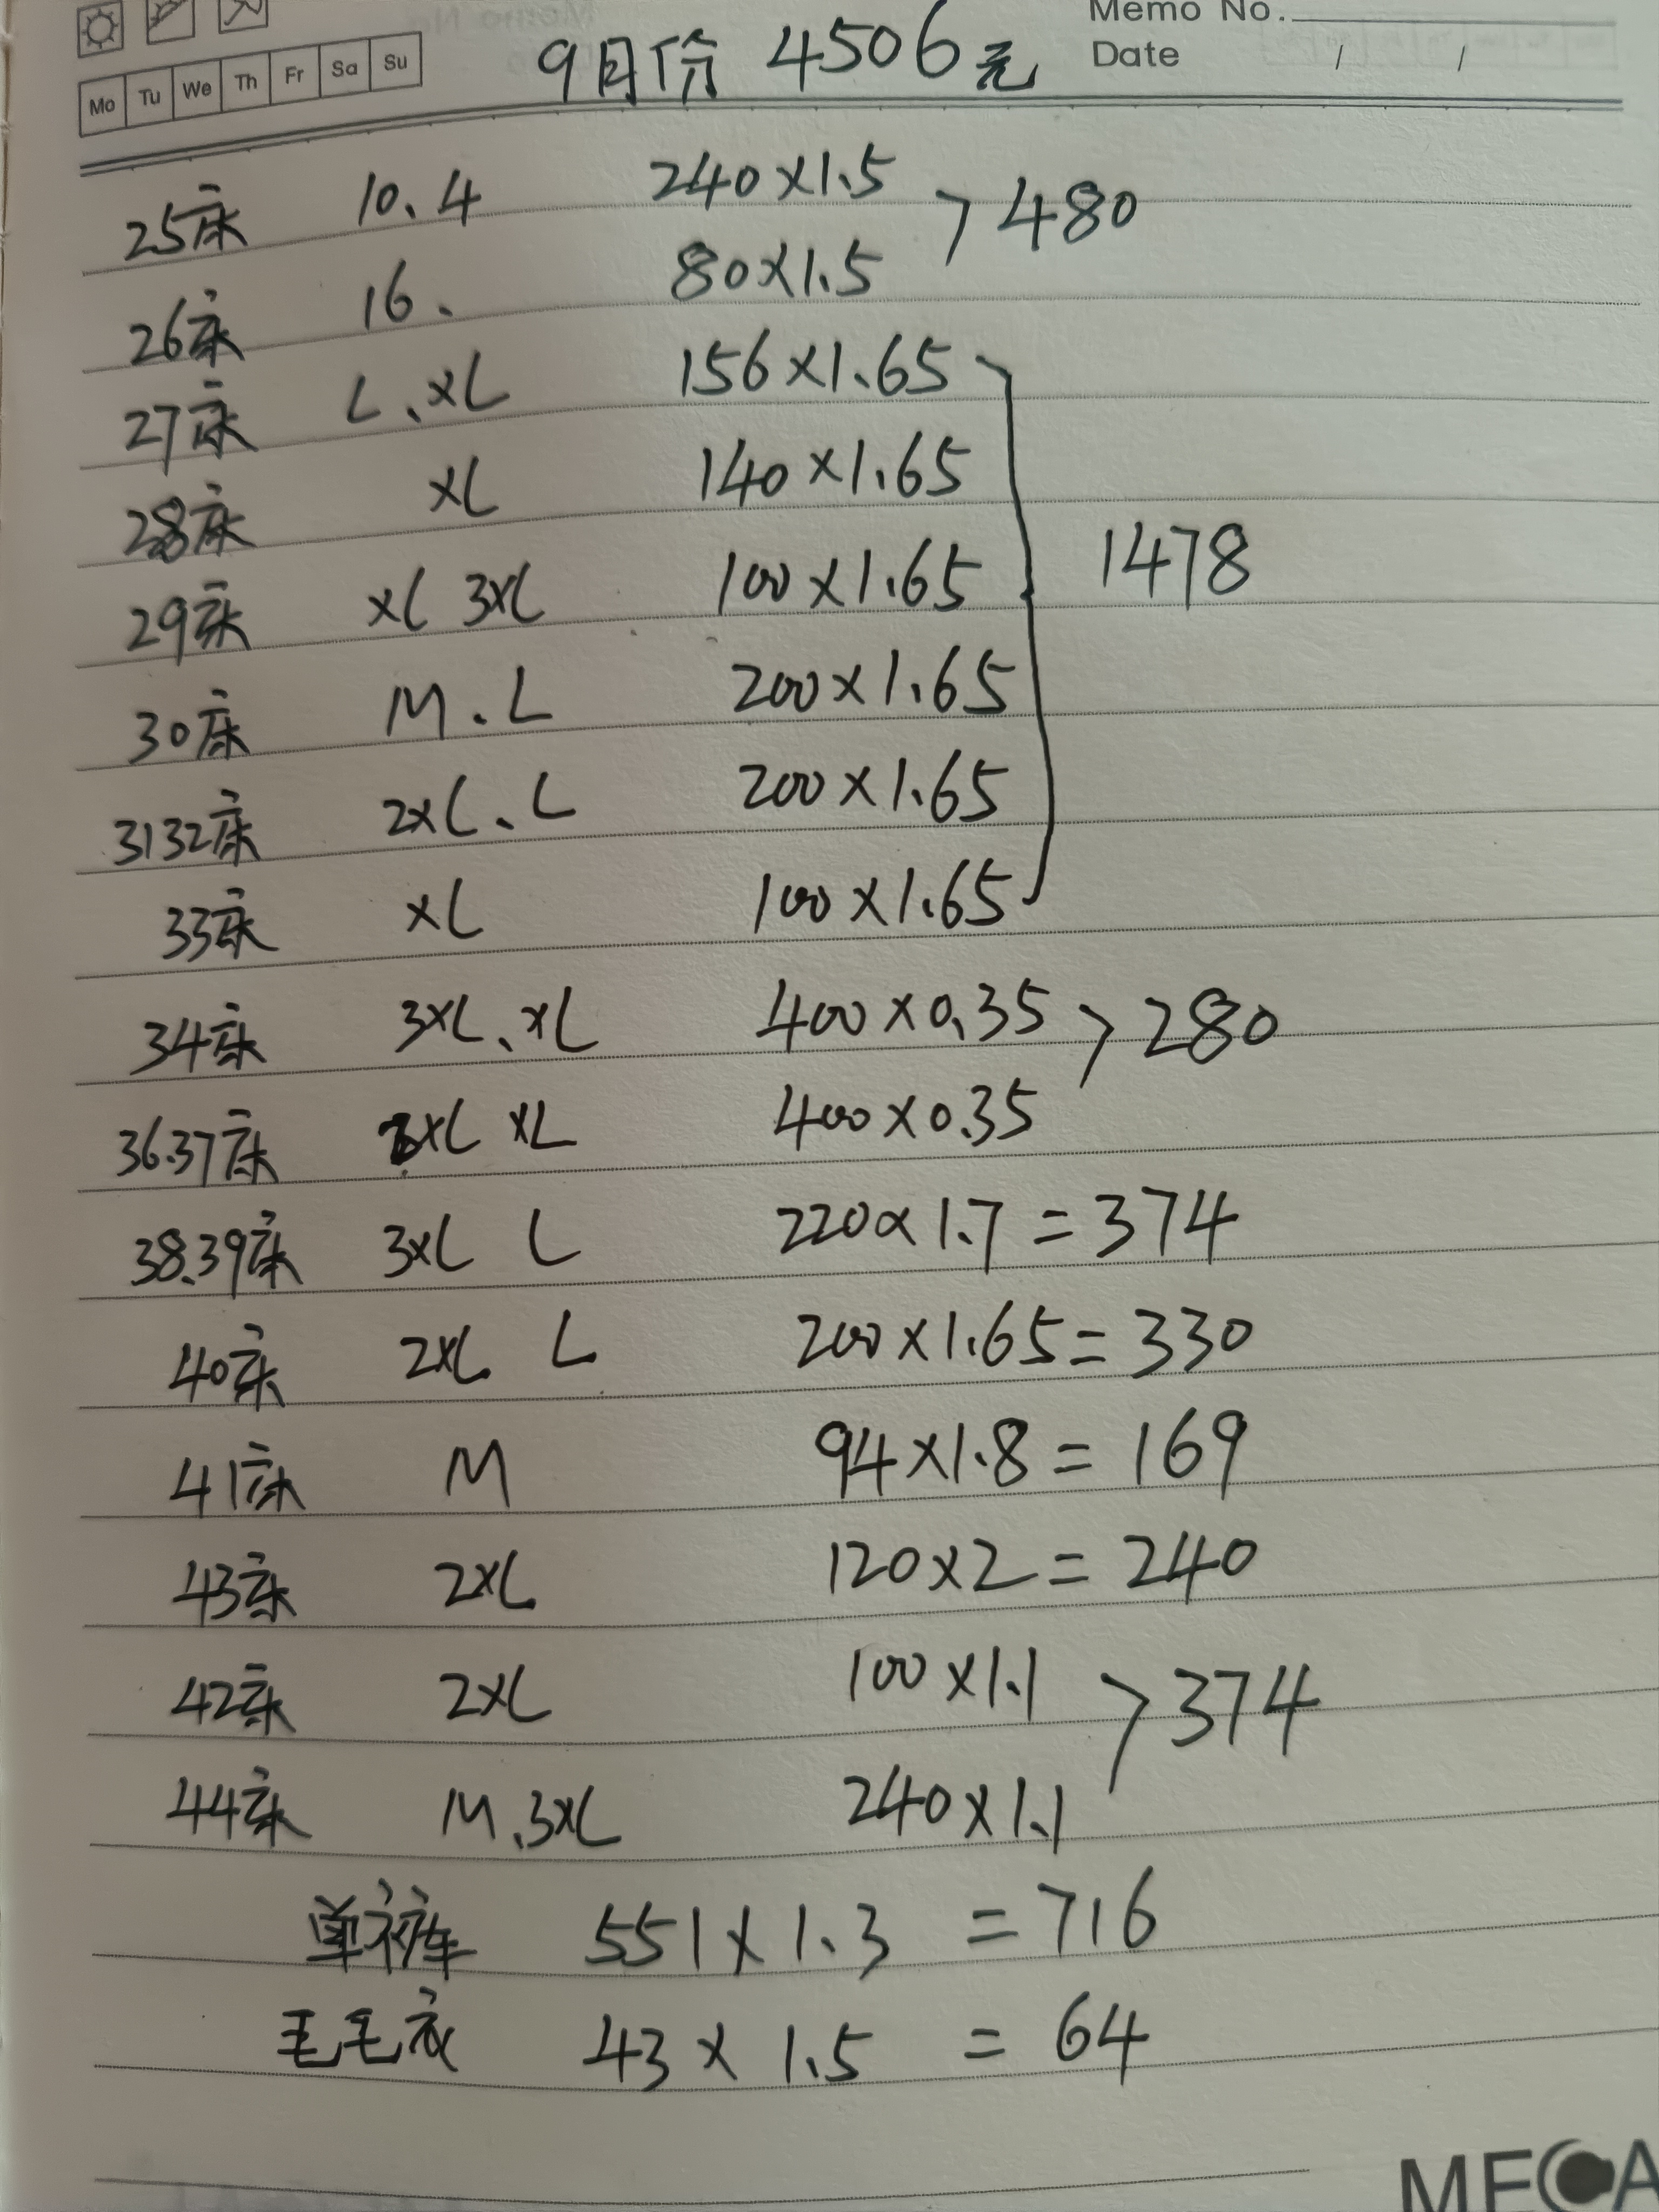 Memo No.
Mo Tu We Th Fr Sa Su
9月份 4506元
Date / /
25床 10.4 240×1.5 >480
26床 16. 80×1.5
27床 L、XL 156×1.65
28床 XL 140×1.65
29床 XL 3XL 100×1.65 1478
30床 M.L 200×1.65
3132床 2XL、L 200×1.65
33床 XL 100×1.65
34床 3XL、XL 400×0.35 >280
36.37床 XL XL 400×0.35
38.39床 3XL L 220×1.7=374
40床 2XL L 200×1.65=330
41床 M 94×1.8=169
43床 2XL 120×2=240
42床 2XL 100×1.1 >374
44床 M.3XL 240×1.1
单裤 551×1.3 =716
毛毛衣 43×1.5 =64